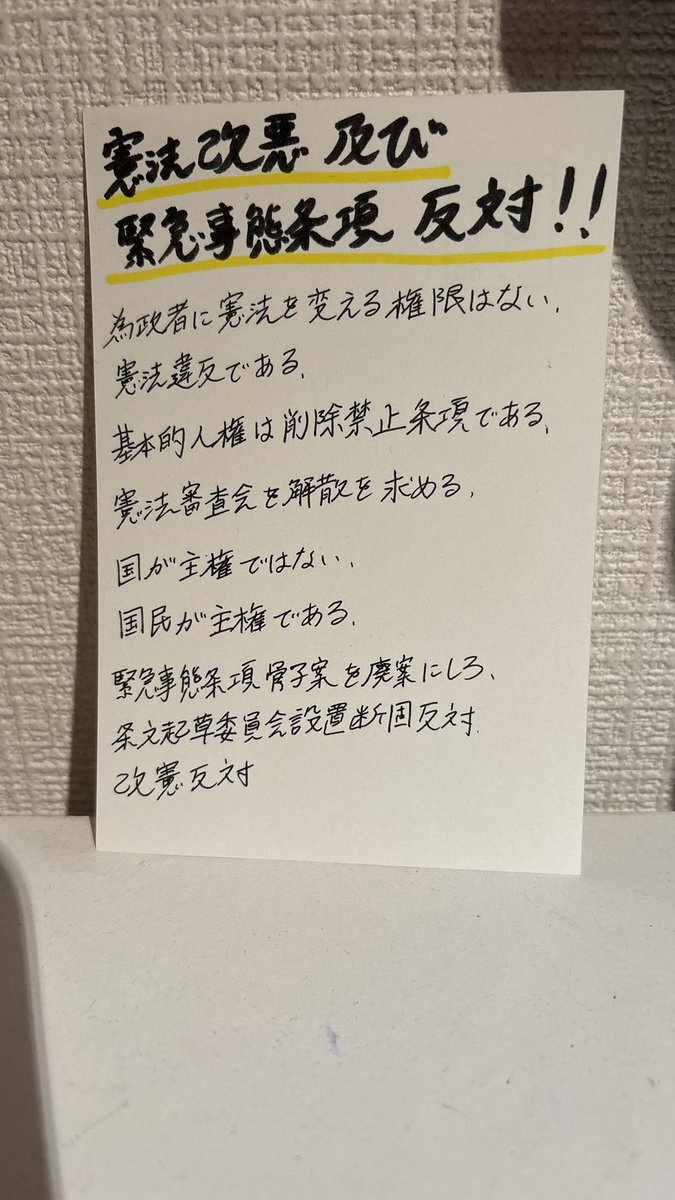 憲法改悪 及び
緊急事態条項 反対!!
為政者に憲法を変える権限はない.
憲法違反である.
基本的人権は削除禁止条項である.
憲法審査会を解散を求める.
国が主権ではない.
国民が主権である.
緊急事態条項骨子案を廃案にしろ.
条文起草委員会設置断固反対.
改憲反対